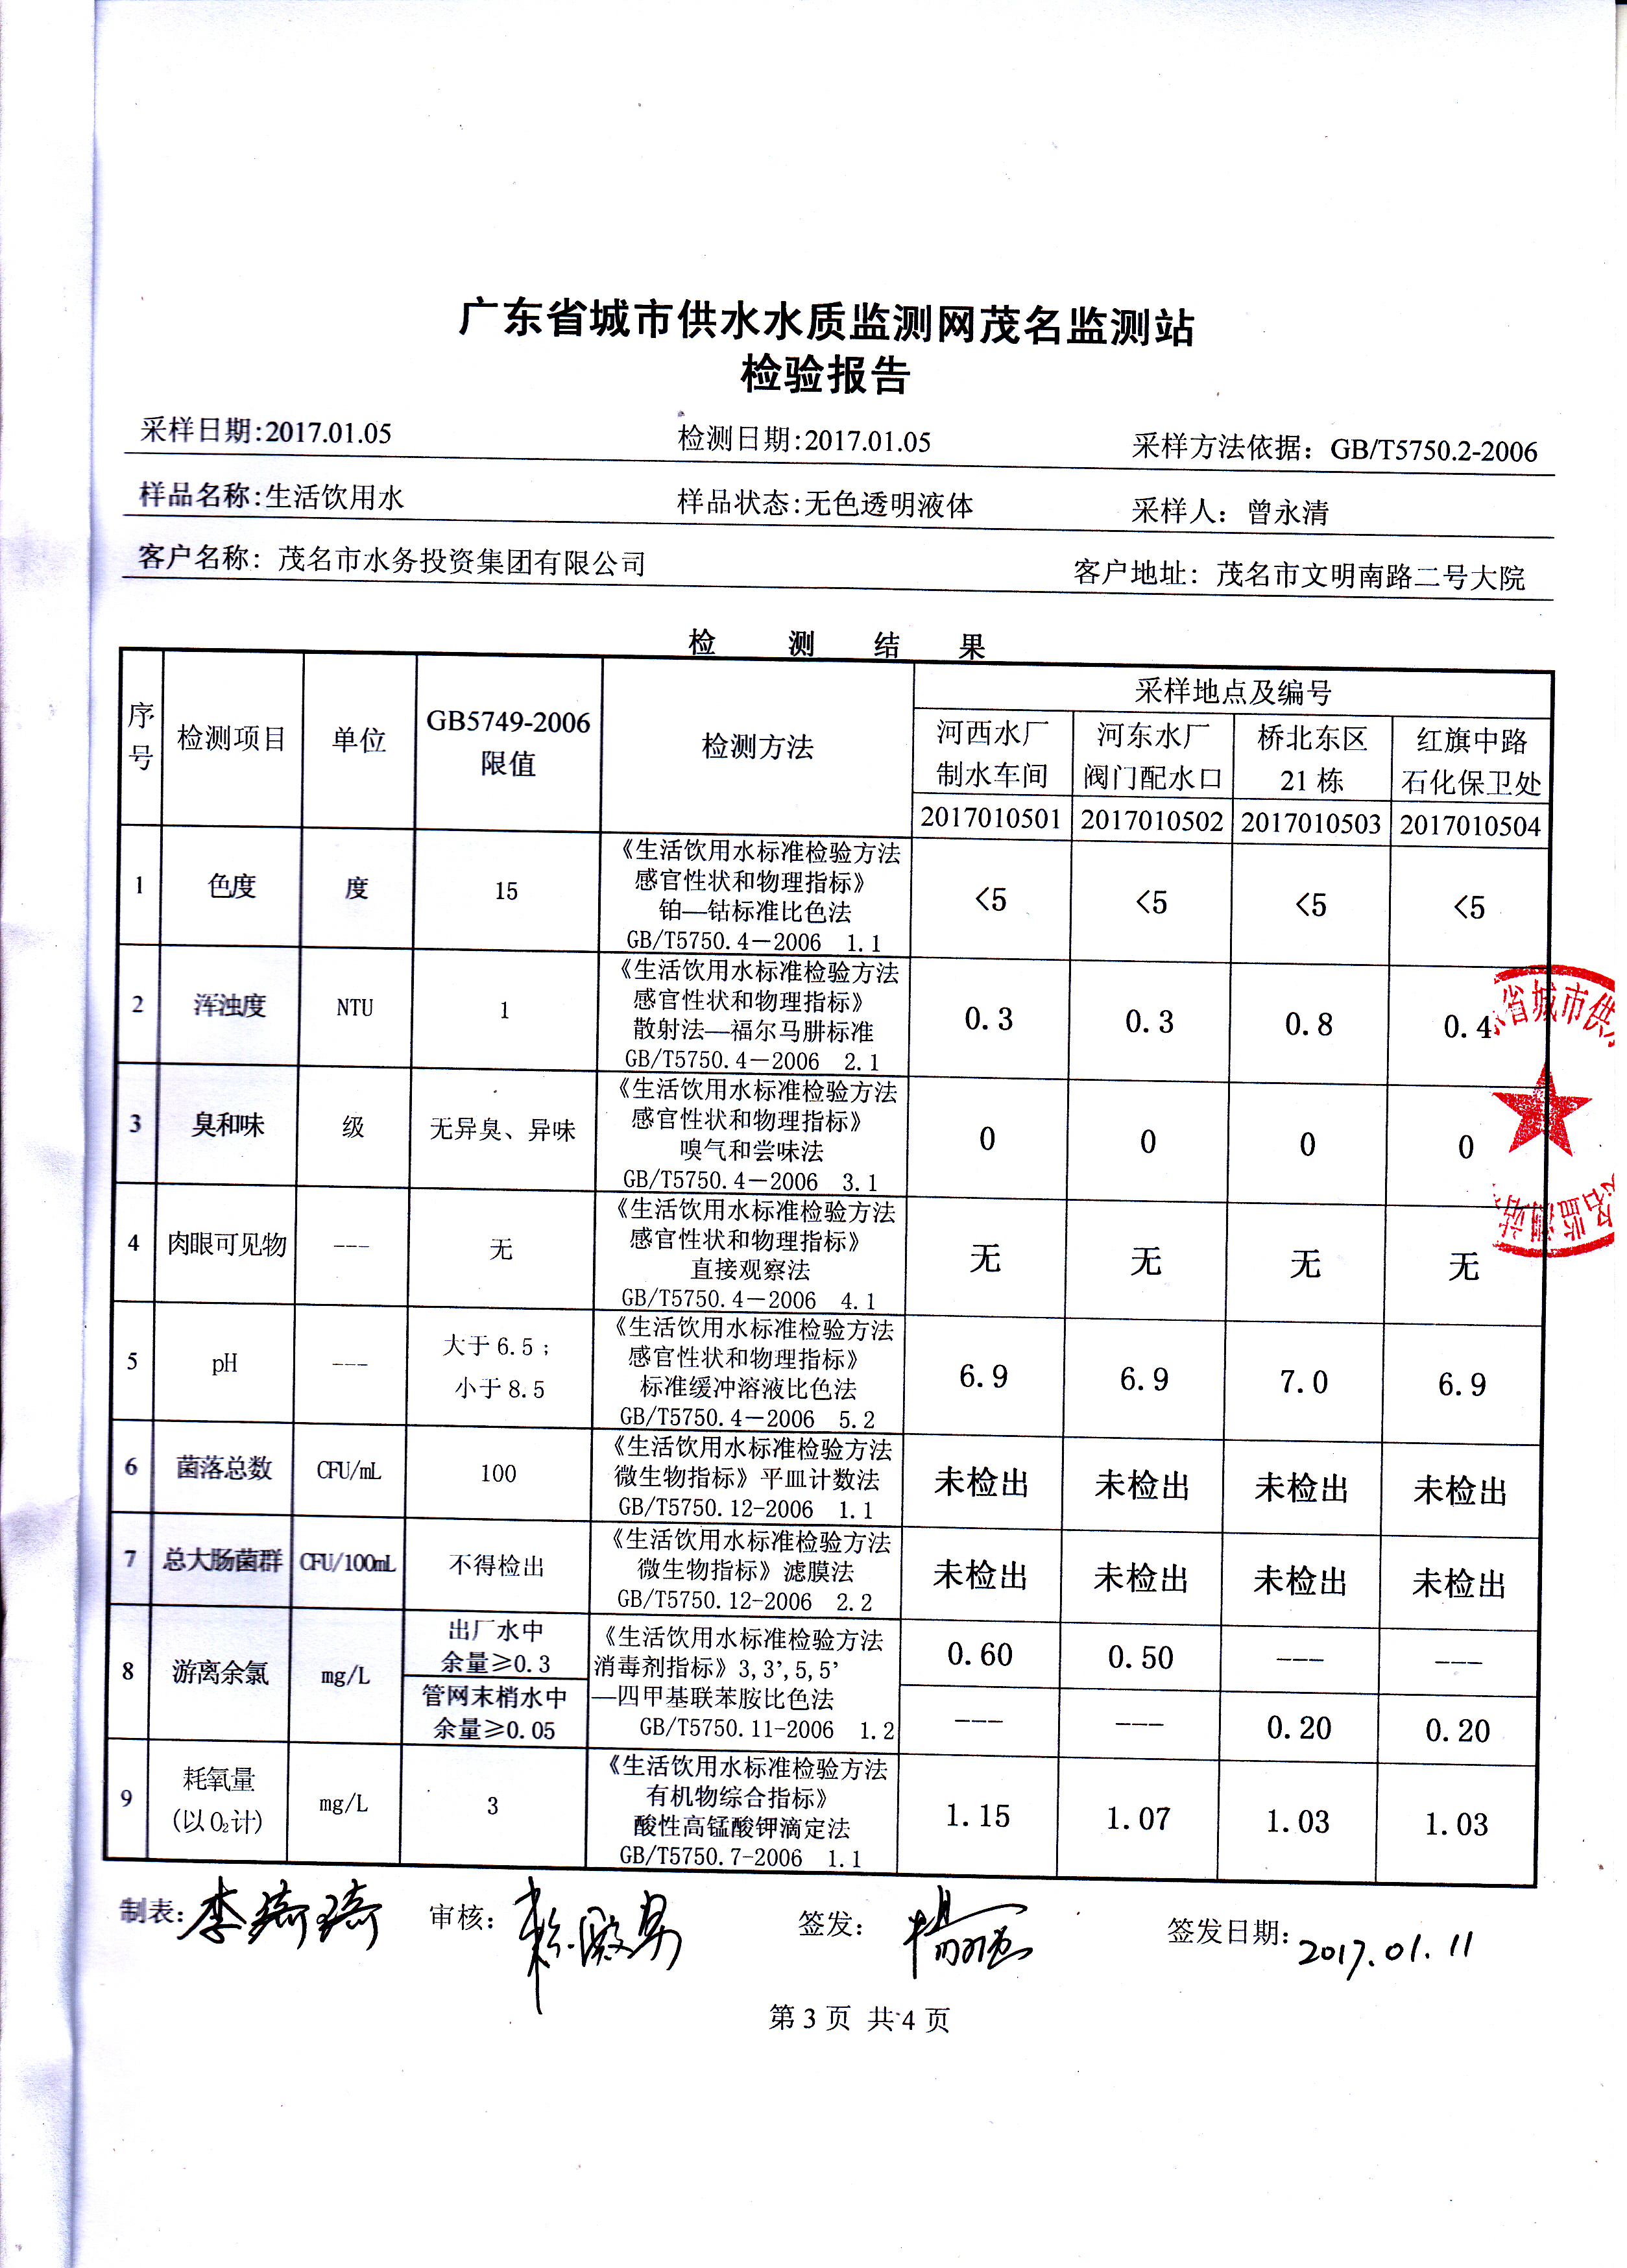 广东省城市供水水质监测网茂名监测站
检验报告
采样日期:2017.01.05 检测日期:2017.01.05 采样方法依据: GB/T5750.2-2006
样品名称:生活饮用水 样品状态:无色透明液体 采样人: 曾永清
客户名称: 茂名市水务投资集团有限公司 客户地址: 茂名市文明南路二号大院
检 测 结 果
序号 检测项目 单位 GB5749-2006 限值 检测方法 采样地点及编号
河西水厂 河东水厂 桥北东区 红旗中路
制水车间 阀门配水口 21 栋 石化保卫处
2017010501 2017010502 2017010503 2017010504
《生活饮用水标准检验方法
感官性状和物理指标》
1 色度 度 15 铂—钴标准比色法 <5 <5 <5 <5
GB/T5750.4—2006 1.1
《生活饮用水标准检验方法
感官性状和物理指标》
2 浑浊度 NTU 1 散射法—福尔马肼标准 0.3 0.3 0.8 0.4
GB/T5750.4—2006 2.1
《生活饮用水标准检验方法
感官性状和物理指标》
3 臭和味 级 无异臭、异味 嗅气和尝味法 0 0 0 0
GB/T5750.4—2006 3.1
《生活饮用水标准检验方法
感官性状和物理指标》
4 肉眼可见物 --- 无 直接观察法 无 无 无 无
GB/T5750.4—2006 4.1
《生活饮用水标准检验方法
大于6.5; 感官性状和物理指标》
5 pH --- 小于8.5 标准缓冲溶液比色法 6.9 6.9 7.0 6.9
GB/T5750.4—2006 5.2
《生活饮用水标准检验方法
6 菌落总数 CFU/mL 100 微生物指标》平皿计数法 未检出 未检出 未检出 未检出
GB/T5750.12-2006 1.1
《生活饮用水标准检验方法
7 总大肠菌群 CFU/100mL 不得检出 微生物指标》滤膜法 未检出 未检出 未检出 未检出
GB/T5750.12-2006 2.2
出厂水中 《生活饮用水标准检验方法
余量≥0.3 消毒剂指标》3,3’,5,5’ 0.60 0.50 --- ---
8 游离余氯 mg/L
管网末梢水中 —四甲基联苯胺比色法
余量≥0.05 GB/T5750.11-2006 1.2 --- --- 0.20 0.20
耗氧量 《生活饮用水标准检验方法
(以O₂计) 有机物综合指标》
9 mg/L 3 酸性高锰酸钾滴定法 1.15 1.07 1.03 1.03
GB/T5750.7-2006 1.1
制表: 李琦琦 审核: 签发: 签发日期: 2017.01.11
第 3 页 共 4 页
省城市供
名监测站